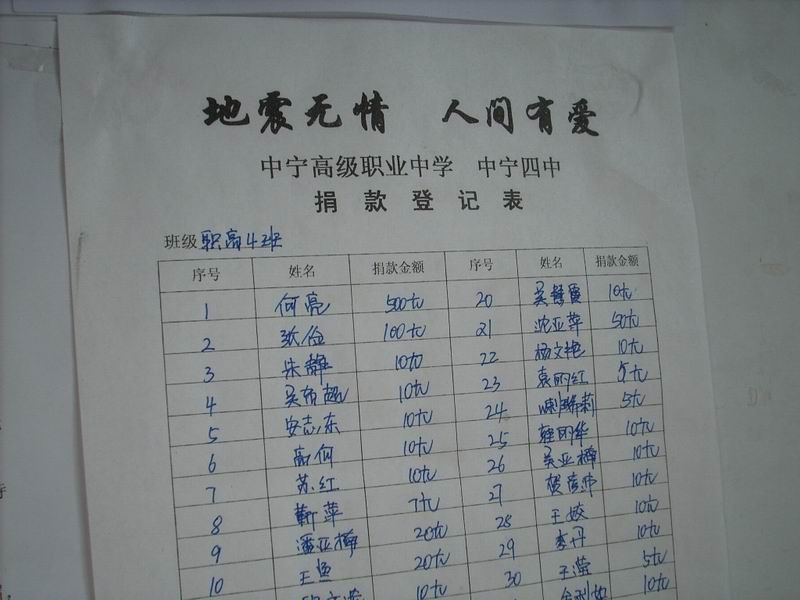 地震无情 人间有爱
中宁高级职业中学 中宁四中
捐款登记表
班级 职高4班
序号 姓名 捐款金额 序号 姓名 捐款金额
1 何亮 500元 20 吴静霞 10元
2 张俭 100元 21 沈亚萍 50元
3 朱静 10元 22 杨文艳 10元
4 吴布超 10元 23 袁丽红 5元
5 安志东 10元 24 莉 5元
6 高何 10元 25 丽华 10元
7 苏红 10元 26 吴亚楠 10元
8 靳萍 7元 27 贺 10元
9 潘亚梅 20元 28 王姣 10元
10 王鱼 20元 29 李丹 10元
10元 30 王莹 5元
10元